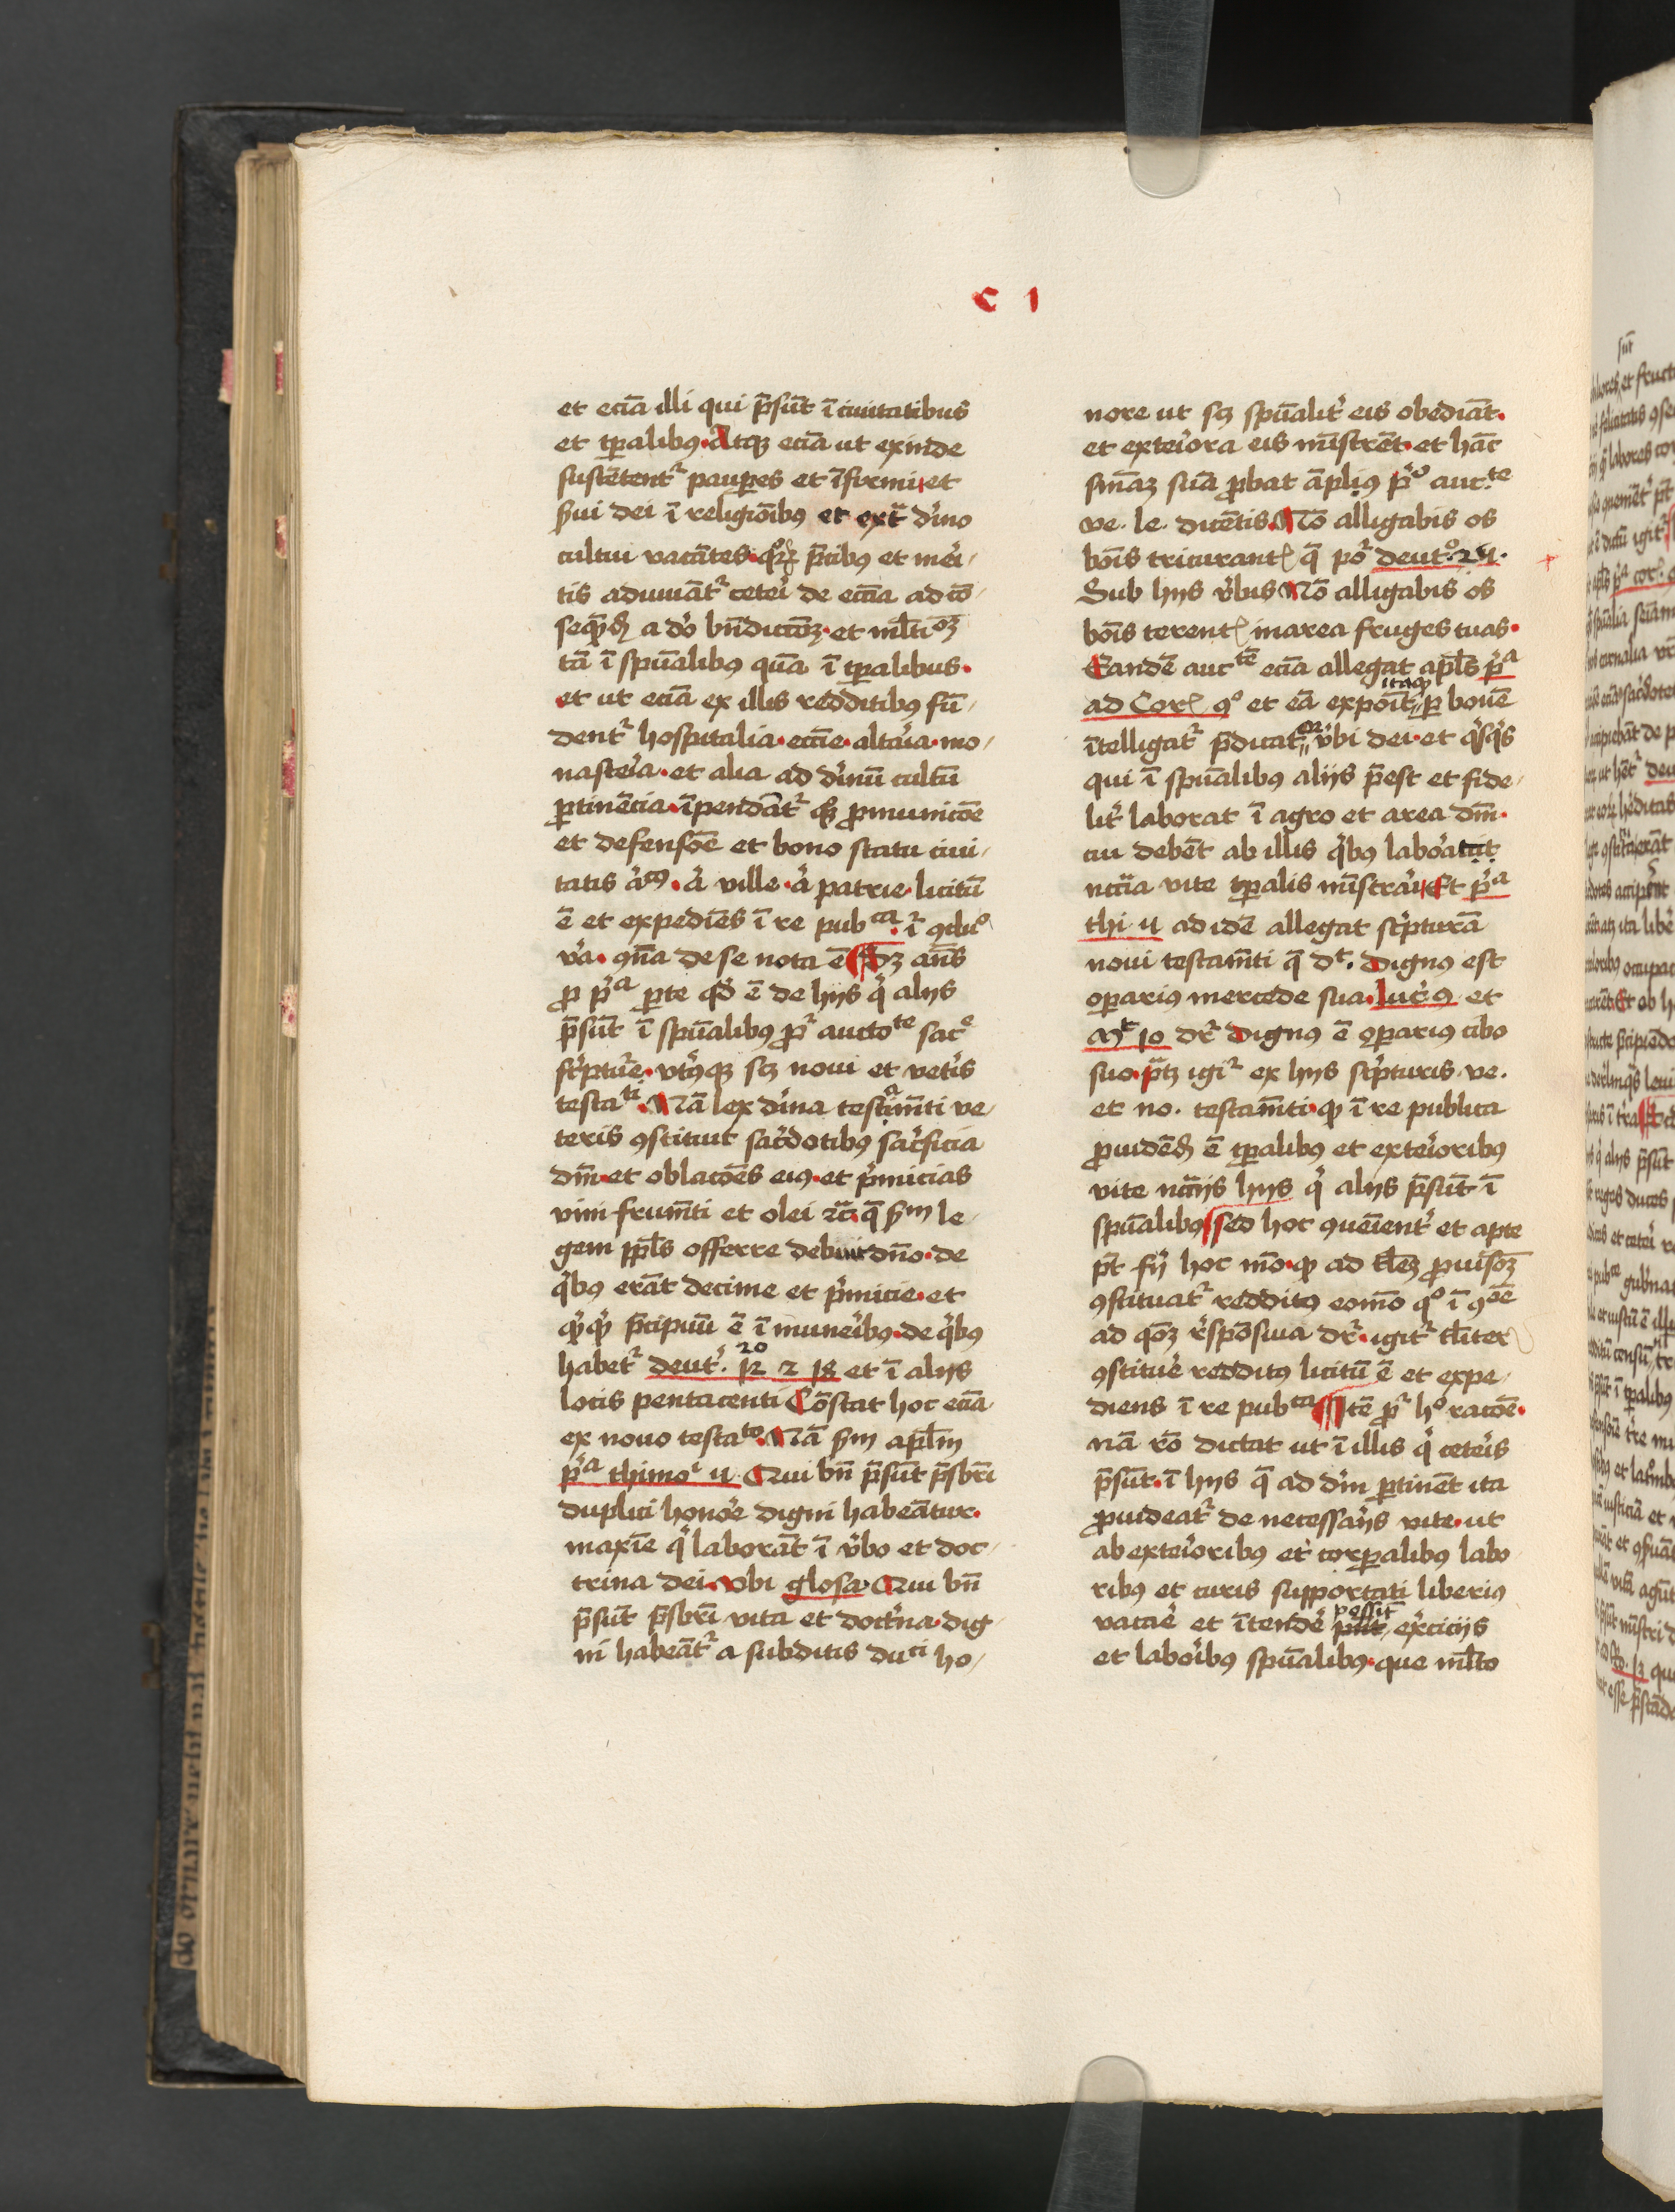 C 1
et eciā illi qui p̄sūt ī ciuitatibus
et tꝑalibꝰ. Atqꝫ eciā ut exinde
sustētentr̄ pauꝑes et īfirmi et
s̄ui dei ī religiōibꝰ et ext̄ᵃ dīno
cultui vacātes. qͦꝝ p̄cibꝰ et meri-
tis adiuuātr̄ ceteri de ecc̄ia ad cō-
seq̄ndā a dō bn̄dictōꝫ. et ml̄tiōꝫ
tā ī spūalibꝰ quā ī tꝑalibus.
et ut eciā ex illis redditibꝰ fū-
dentr̄ hospitalia. ecc̄ie. altaria. mo-
nasteria. et alia ad dīnū cultū
ꝑtinēcia. īpendātr̄ ꝓ municōe
et defensōe et bono statu ciui-
tatis
ville
patrie licitū
ē et expediēs ī re pubᶜᵃ.
vᵃ. ꝯn̄a de se nota ē ¶ Sꝫ an̄s
ꝓ pᵃ ꝑte qd̄ ē de hijs qͥ alijs
p̄sūt ī spūalibꝰ pꝫ auctoᵗᵉ sacᵉ
scͥpture. vtͥusqꝫ scꝫ noui et vetͥis
testaᵗⁱ. Nā lex dīna testam̄ti ve-
teris ꝯstituit sacͥdotibꝰ sacͥficia
dn̄i et oblacōes eiꝰ. et pͥmicias
vini frum̄ti et olei ⁊c̄. q̄ s̄m le-
gem ppl̄s offerre debuit dn̄o. de
qͥbꝰ erāt decime et pͥmicie. et
p̄cipuū ē ī muneribꝰ. de qͥbꝰ
habetr̄ deutͥ. 12 20 ⁊ 18 et ī alijs
locis pentatenti Cōstat hoc eciā
ex nouo testaᵗᵒ. Nā s̄m apl̄m
pᵃ thimoͭ u. Qui bn̄ p̄sūt p̄sbr̄i
duplici honore digni habeātur.
maxīe qͥ laborāt ī v̄bo et doc-
trina dei. vbi glosa. Qui bn̄
p̄sūt p̄sbr̄i vita et doctͥna. dig-
ni habeātr̄ a subditis ducⁱ ho-
nore ut scꝫ spūalitͥ eis obediāt.
et exteriora eis mīstrēt. et hāc
sn̄iaꝫ suā ꝓbat āpliꝰ pͥͦ aucᵗᵉ
ve. le. dicētis. Nō alligabis os
bouis tricurantꝭ q̄ poͬ deutͦ. 24.
Sub hijs v̄bis Nō alligabis os
bouis terentꝭ in area fruges tuas.
Eandē aucᵗᵉ eciā allegat apl̄s pͥᵃ
ad Corꝭ 9ͦ et eā expoīt itaqꝫ ꝑ bouē
ītelligatr̄ p̄dicatoꝛ v̄bi dei. et qͥsqͥs
qui ī spūalibꝰ alijs p̄est et fide-
litͥ laborat ī agro et area dn̄i.
cui debēt ab illis qͥbꝰ laborat
nc̄cia vite tꝑalis mīstrari Et pͥᵃ
thi u ad idē allegat scͥpturā
noui testam̄ti q̄ dͭ. Dignꝰ est
oꝑariꝰ mercede sua. lucͥ. 9 et
Mͭ 10 dr̄ Dignꝰ ē oꝑariꝰ cibo
suo. pꝫ igiͬ ex hijs scͥpturis ve.
et no. testam̄ti. qꝫ ī re publica
ꝓuidēdū ē tꝑalibꝰ et exterioribꝰ
vite nc̄cijs hijs qͥ alijs p̄sūt ī
spūalibꝰ. sed hoc ꝯuenientͥ et apte
pͭ fij̄ hoc mō. qꝫ ad tl̄eꝫ ꝓuisōꝫ
ꝯstituatr̄ redditꝰ eo mō qͦ ī ꝯoē
ad qōꝫ rn̄sponsiua dr̄. igitr̄ tl̄iter
ꝯstituē redditꝰ licitū ē et expe-
diens ī re pubᶜᵃ ¶ Itē pͬ hͦ racōe.
nā rō dictat ut ī illis qͥ ceteris
p̄sūt. ī hijs q̄ ad dm̄ ꝑtinēt ita
ꝓuideatr̄ de necessarijs vite. ut
ab exterioribꝰ et corꝑalibꝰ labo
ribꝰ et curis supportati liberiꝰ
vacaē et ītendē possīt exercicijs
et laboribꝰ spūalibꝰ. que ml̄to